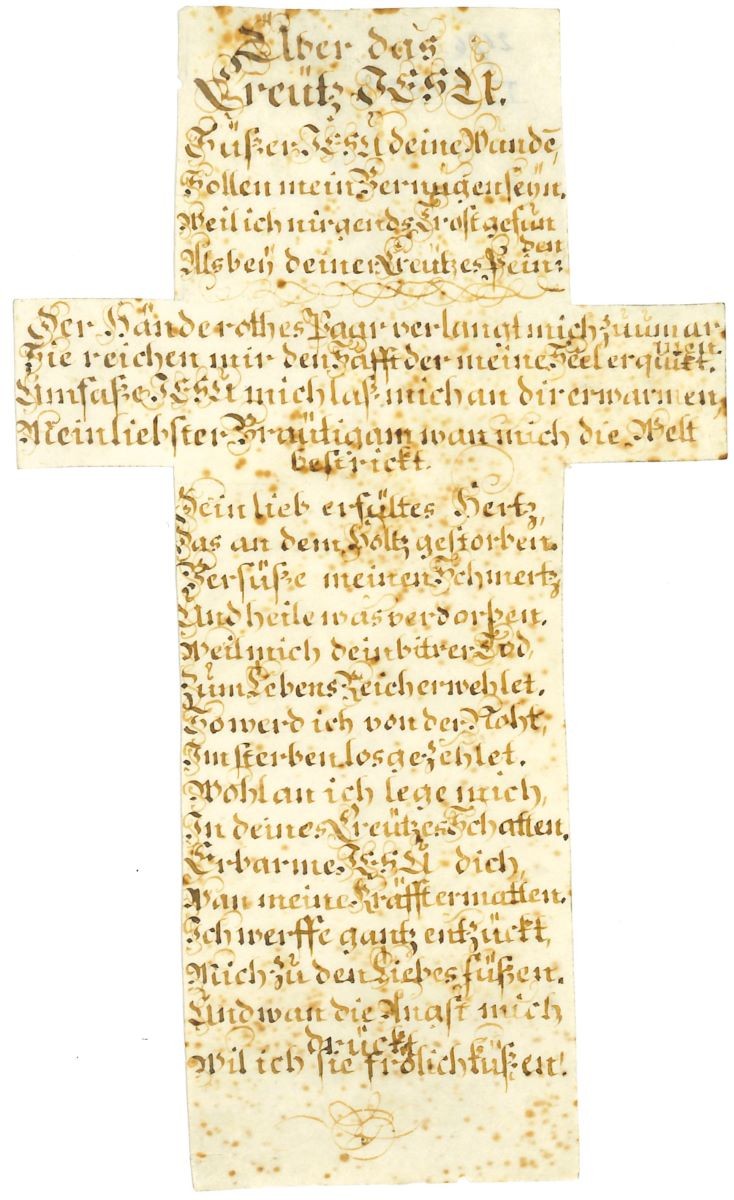 Uber das
Creütz JESU.
Süßer JESU deine Wandē,
Sollen mein Vernügen seÿn.
Weil ich nirgends Trost gefun
den
Als beÿ deiner Creützes Pein:
Der Hände rothes Paar verlangt mich zuümar
men
Sie reichen mir den Safft der meine Seel erqūickt.
Umfaße JESU mich laß mich an dir erwarmen,
Mein liebster Bräutigam wan mich die Welt
bestrickt.
Dein lieb erfültes Hertz,
Das an dem Holtz gestorben.
Versüße meinen Schmertz,
Und heile was verdorben.
Weil mich dein bitrer Tod,
Zum Lebens Reich erwehlet.
So werd ich von der Noht,
Im sterben losgezehlet.
Wohl an ich lege mich,
In deines Creützes Schatten.
Erbarme JESU dich,
Wan meine Kräffte rmatten.
Ich werffe gantz entzückt,
Mich zu den Liebes füßen.
Und wan die Angst mich
drückt
Wil ich sie frölich küßen!